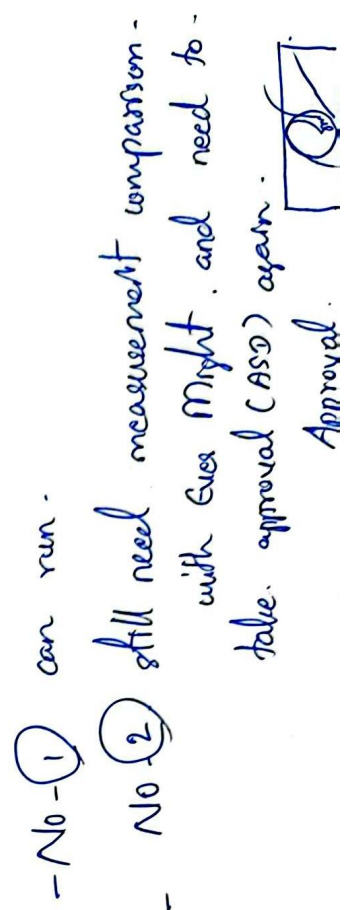 - No - 1 can run.
- No 2 still need measurement comparison.
with Ever Might. and need to.
take. approval (ASD) again.
Approval.